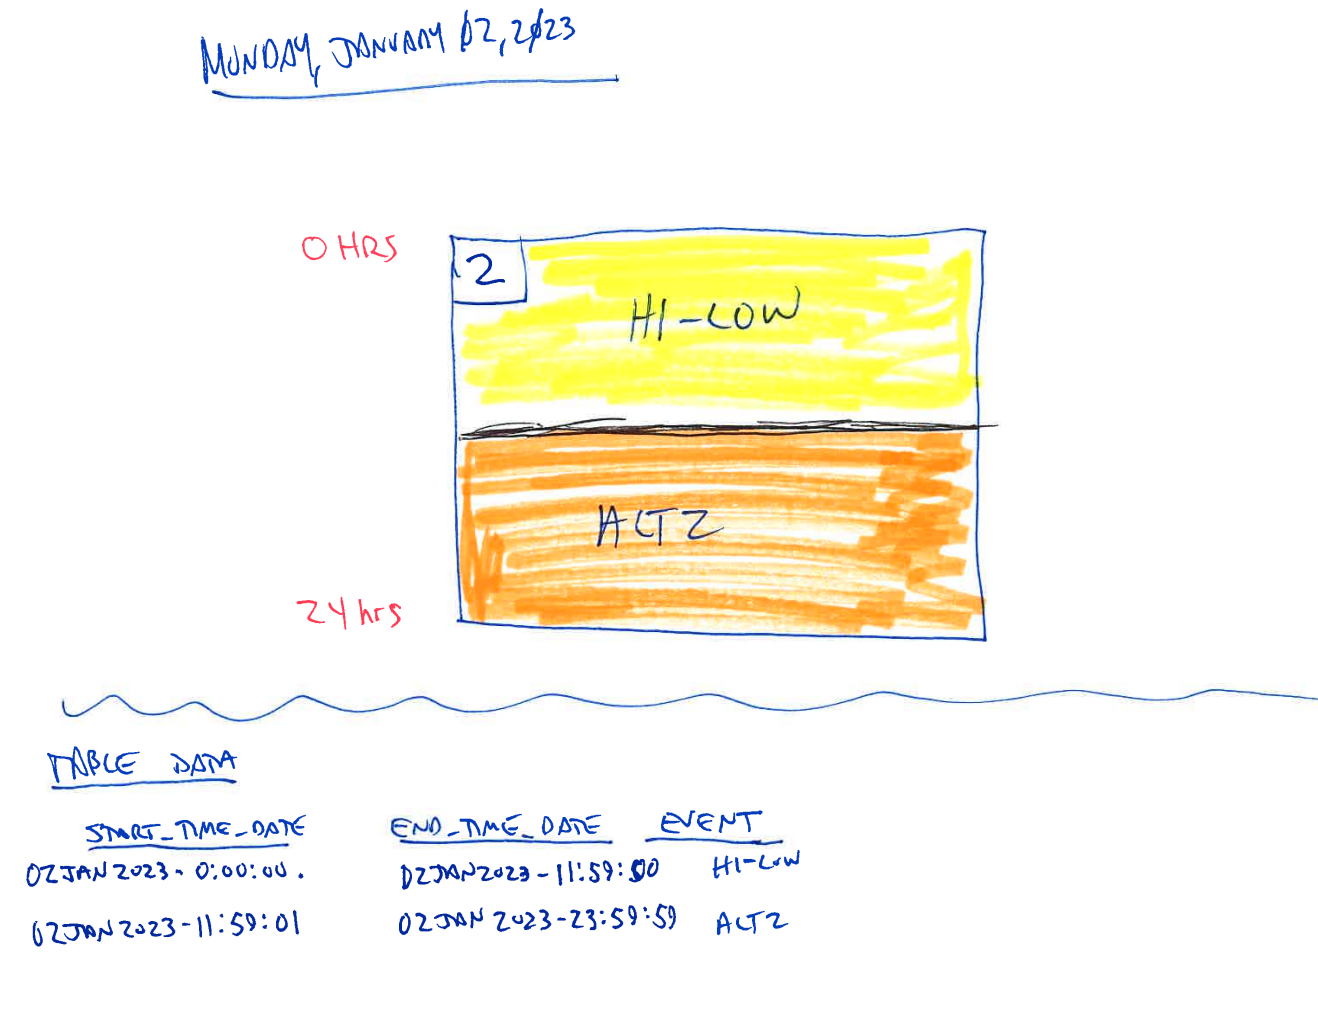 MONDAY, JANUARY 02, 2023
0 HRS
2
HI-LOW
ALT2
24 hrs
TABLE DATA
START_TIME_DATE END_TIME_DATE EVENT
02JAN2023-0:00:00. 02JAN2023-11:59:00 HI-LOW
02JAN2023-11:59:01 02JAN2023-23:59:59 ALT2